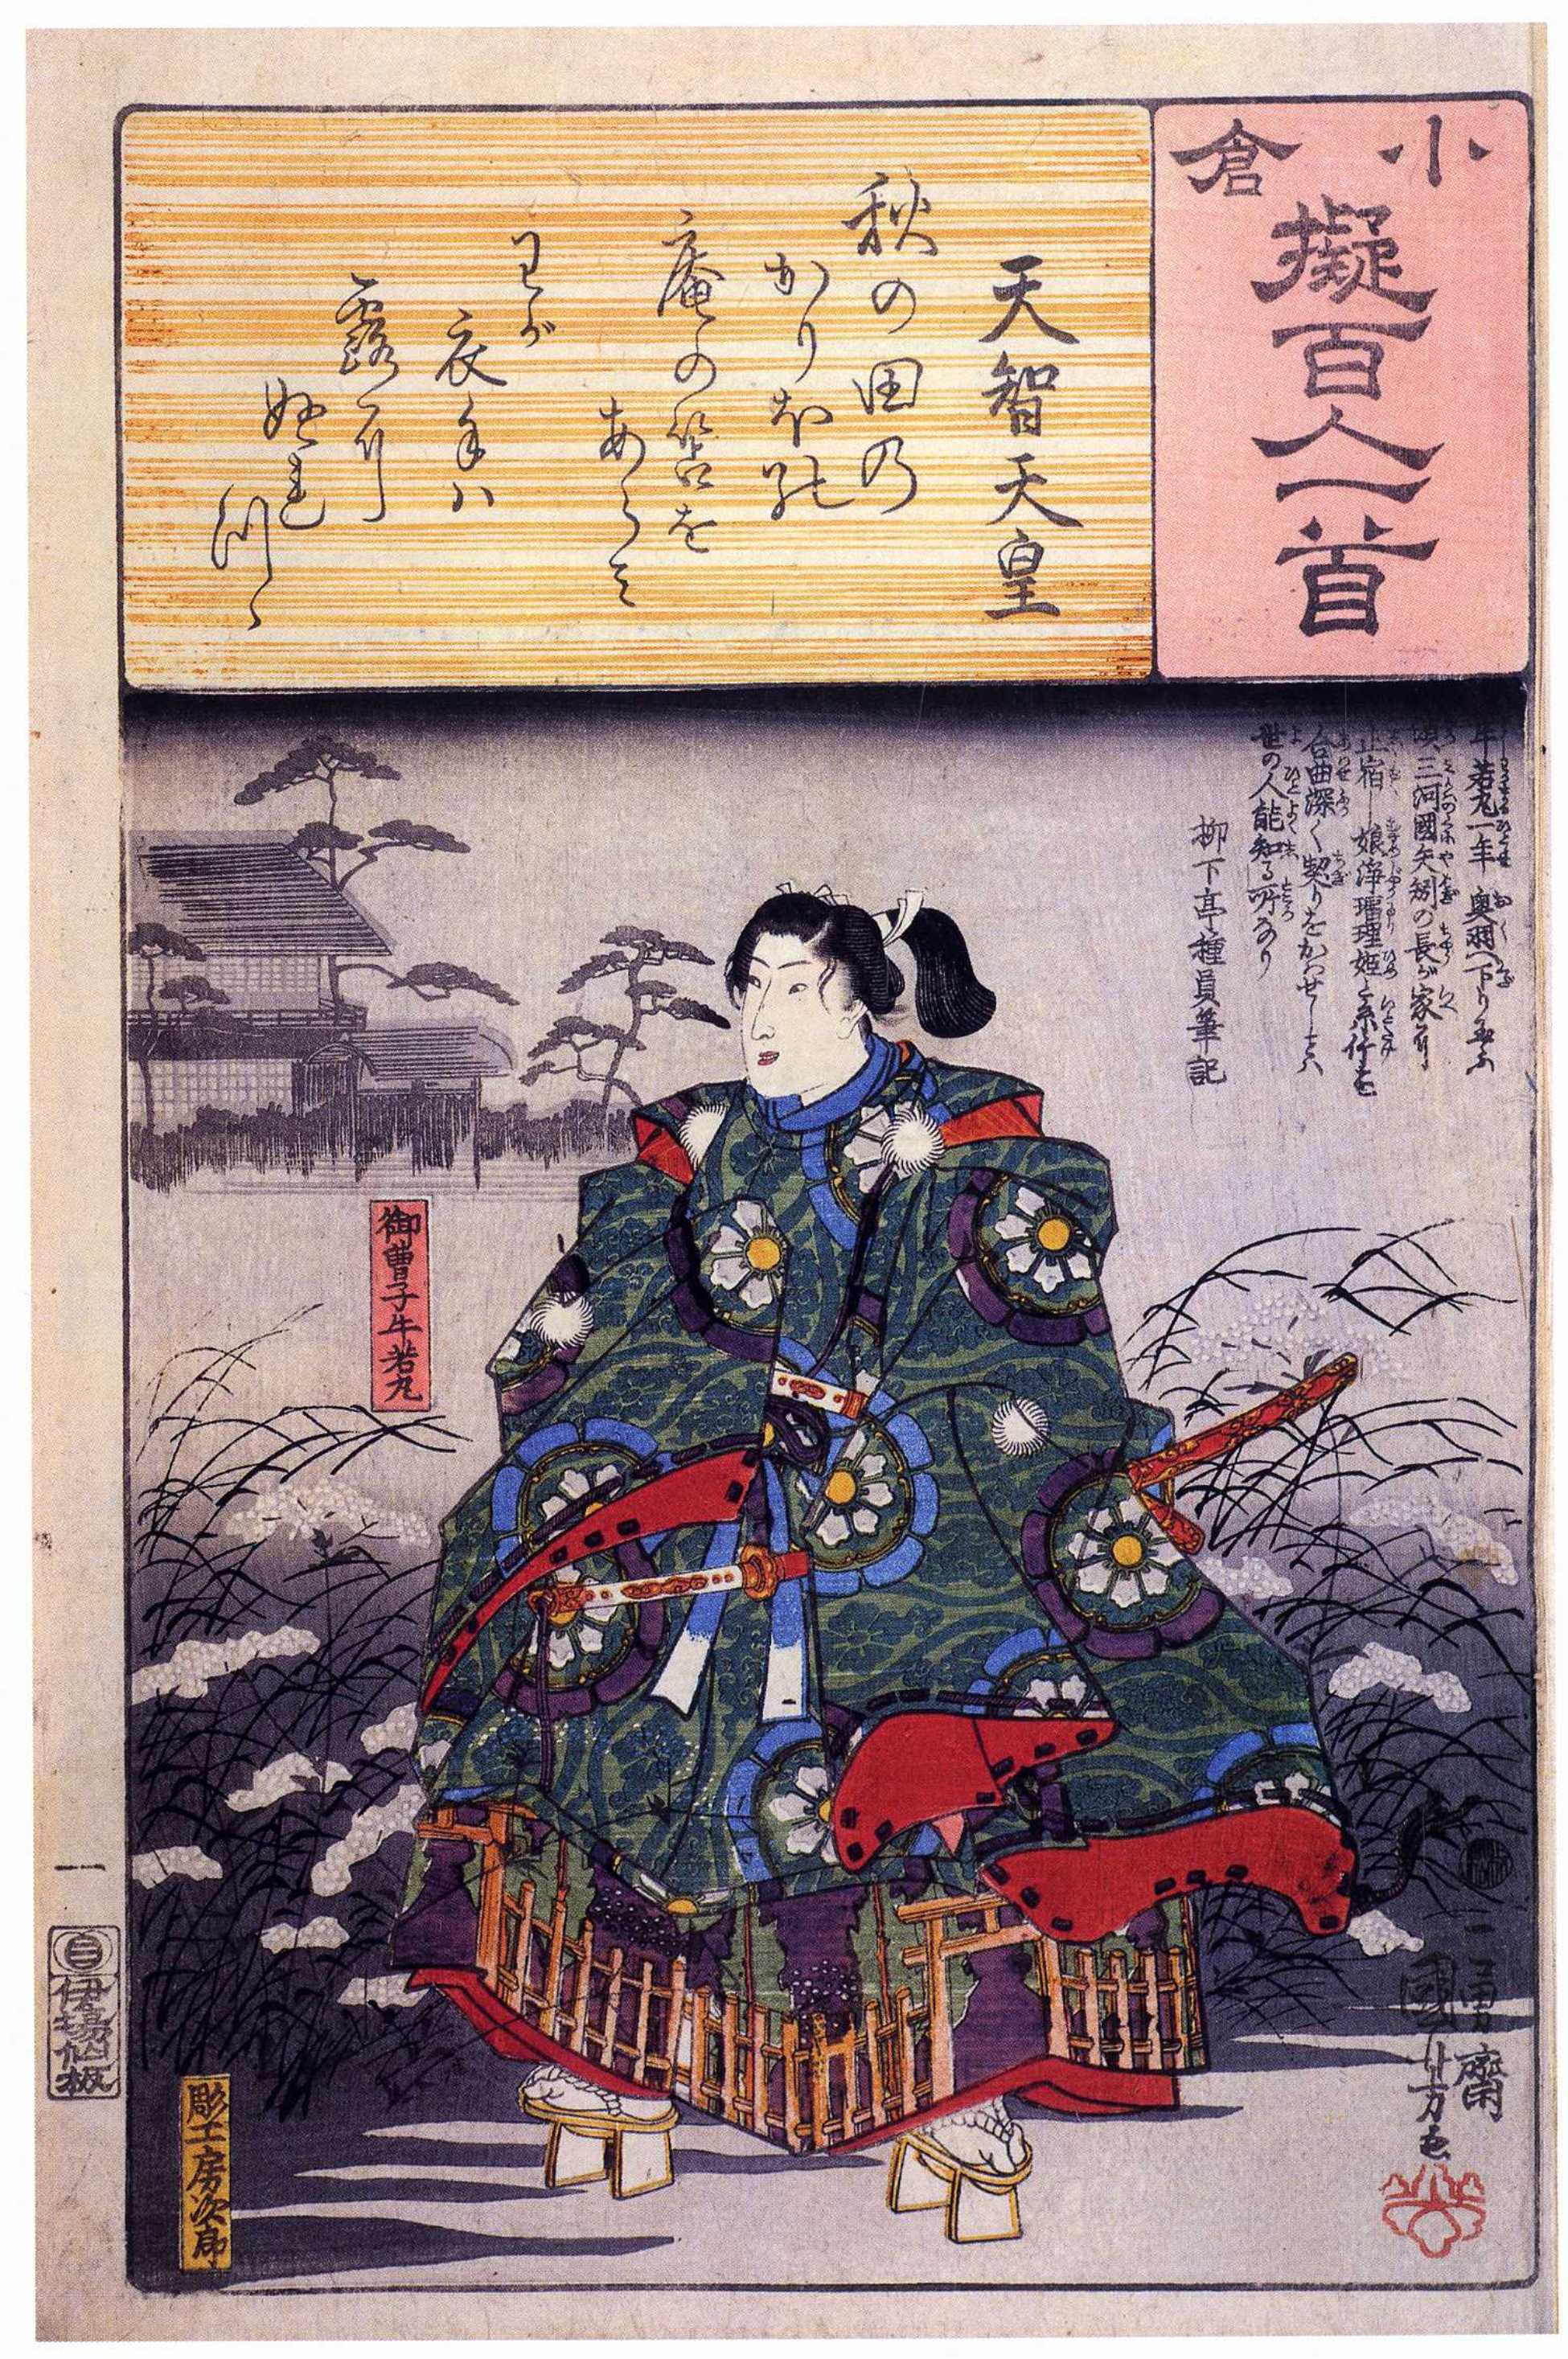 小倉
擬百人一首
天智天皇
秋の田乃
かりほの
庵の笘を
あらみ
わが
衣手ハ
露に
ぬれ
つゝ
牛若丸一年奥羽へ下り玉ふ
頃三河國矢矧の長が家に
止宿し娘浄瑠理姫と糸竹を
合曲深く契りをかはせしこと
世の人能知る所なり
柳下亭種員筆記
御曹子牛若丸
一勇齋
國芳画
一
伊場仙板
彫工房次郎